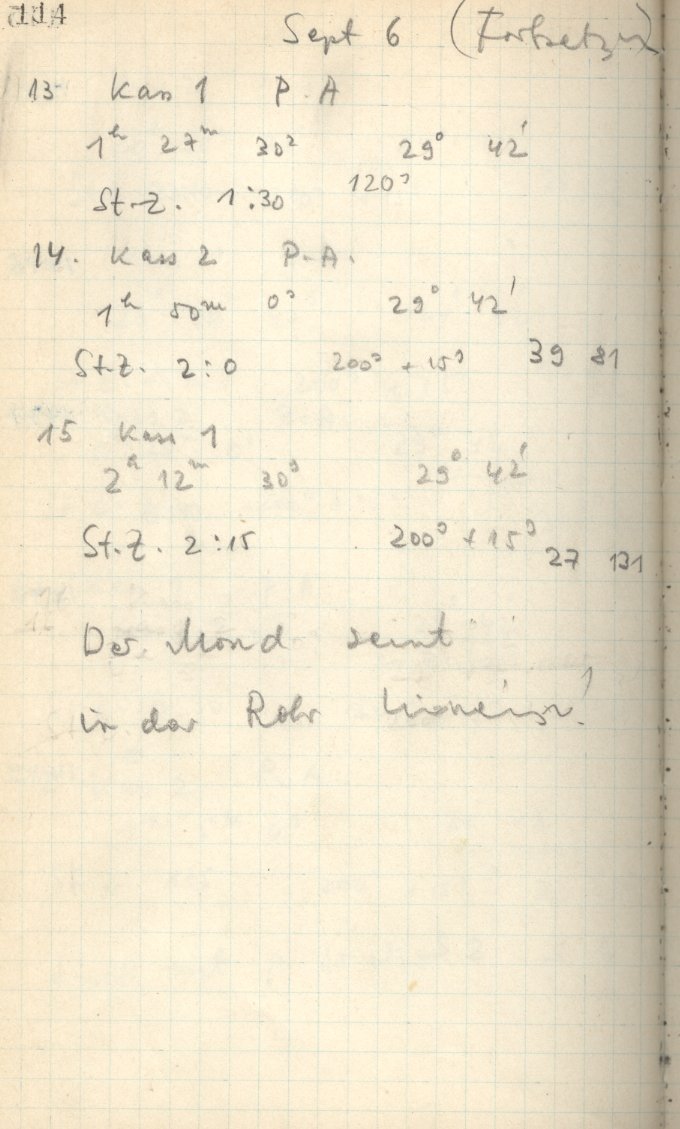 114
Sept 6 (Fortsetzen)
13 Kass 1 P. A
1h 27m 30s 29° 42'
St.-Z. 1:30 120s
14. Kass 2 P.A.
1h 50m 0s 29° 42'
St.Z. 2:0 200s + 15s 39 81
15 Kass 1
2h 12m 30s 29° 42'
St.Z. 2:15 200s + 15s 27 131
Der Mond scint
in dar Rohr hinein!